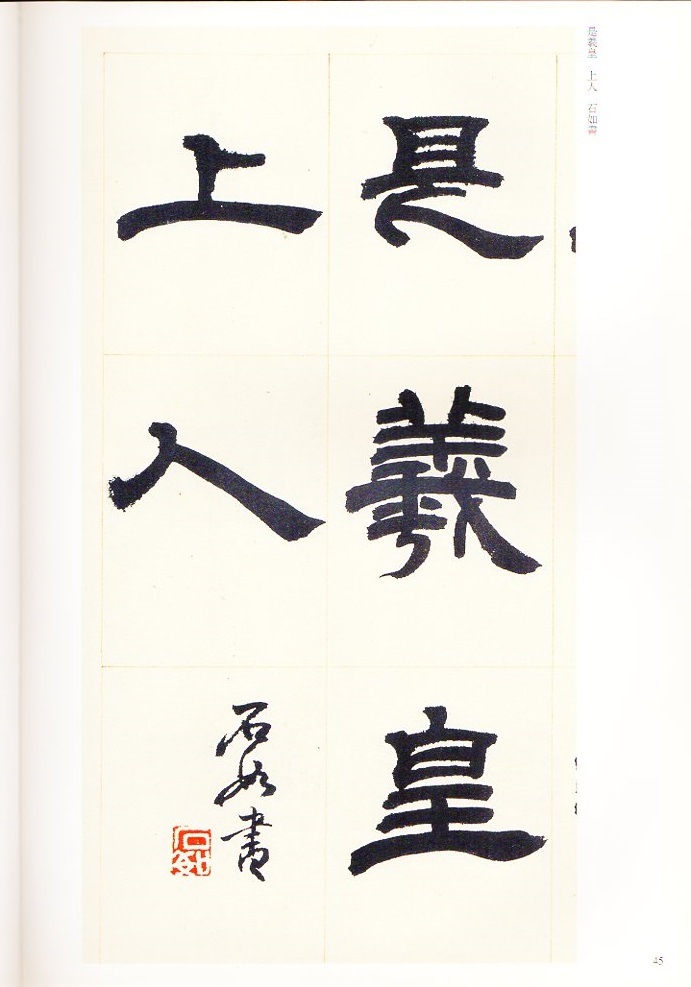 是羲皇上人石如書
是羲皇
上人
石如書
石如
45